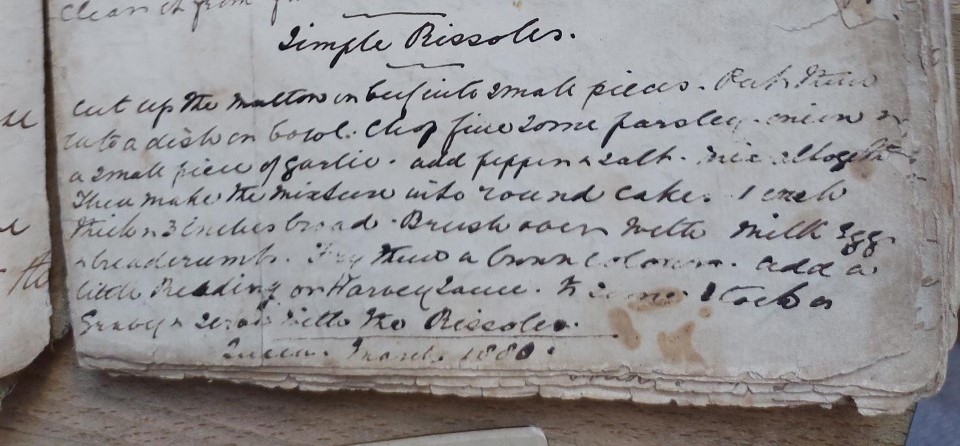 Clean it from
Simple Rissoles.
Cut up the mutton or beef into small pieces. Put them
into a dish or bowl. Chop fine some parsley onion or
a small piece of garlic. add pepper & salt. mix altogether
Then make the mixture into round cakes 1 inch
thick & 3 inches broad. Brush over with milk Egg
& breadcrumbs. Fry them a brown colour. add a
little Reading or Harvey Sauce. to some Stock or
Gravy & serve with the Rissoles.
Queen. March 1880.
the